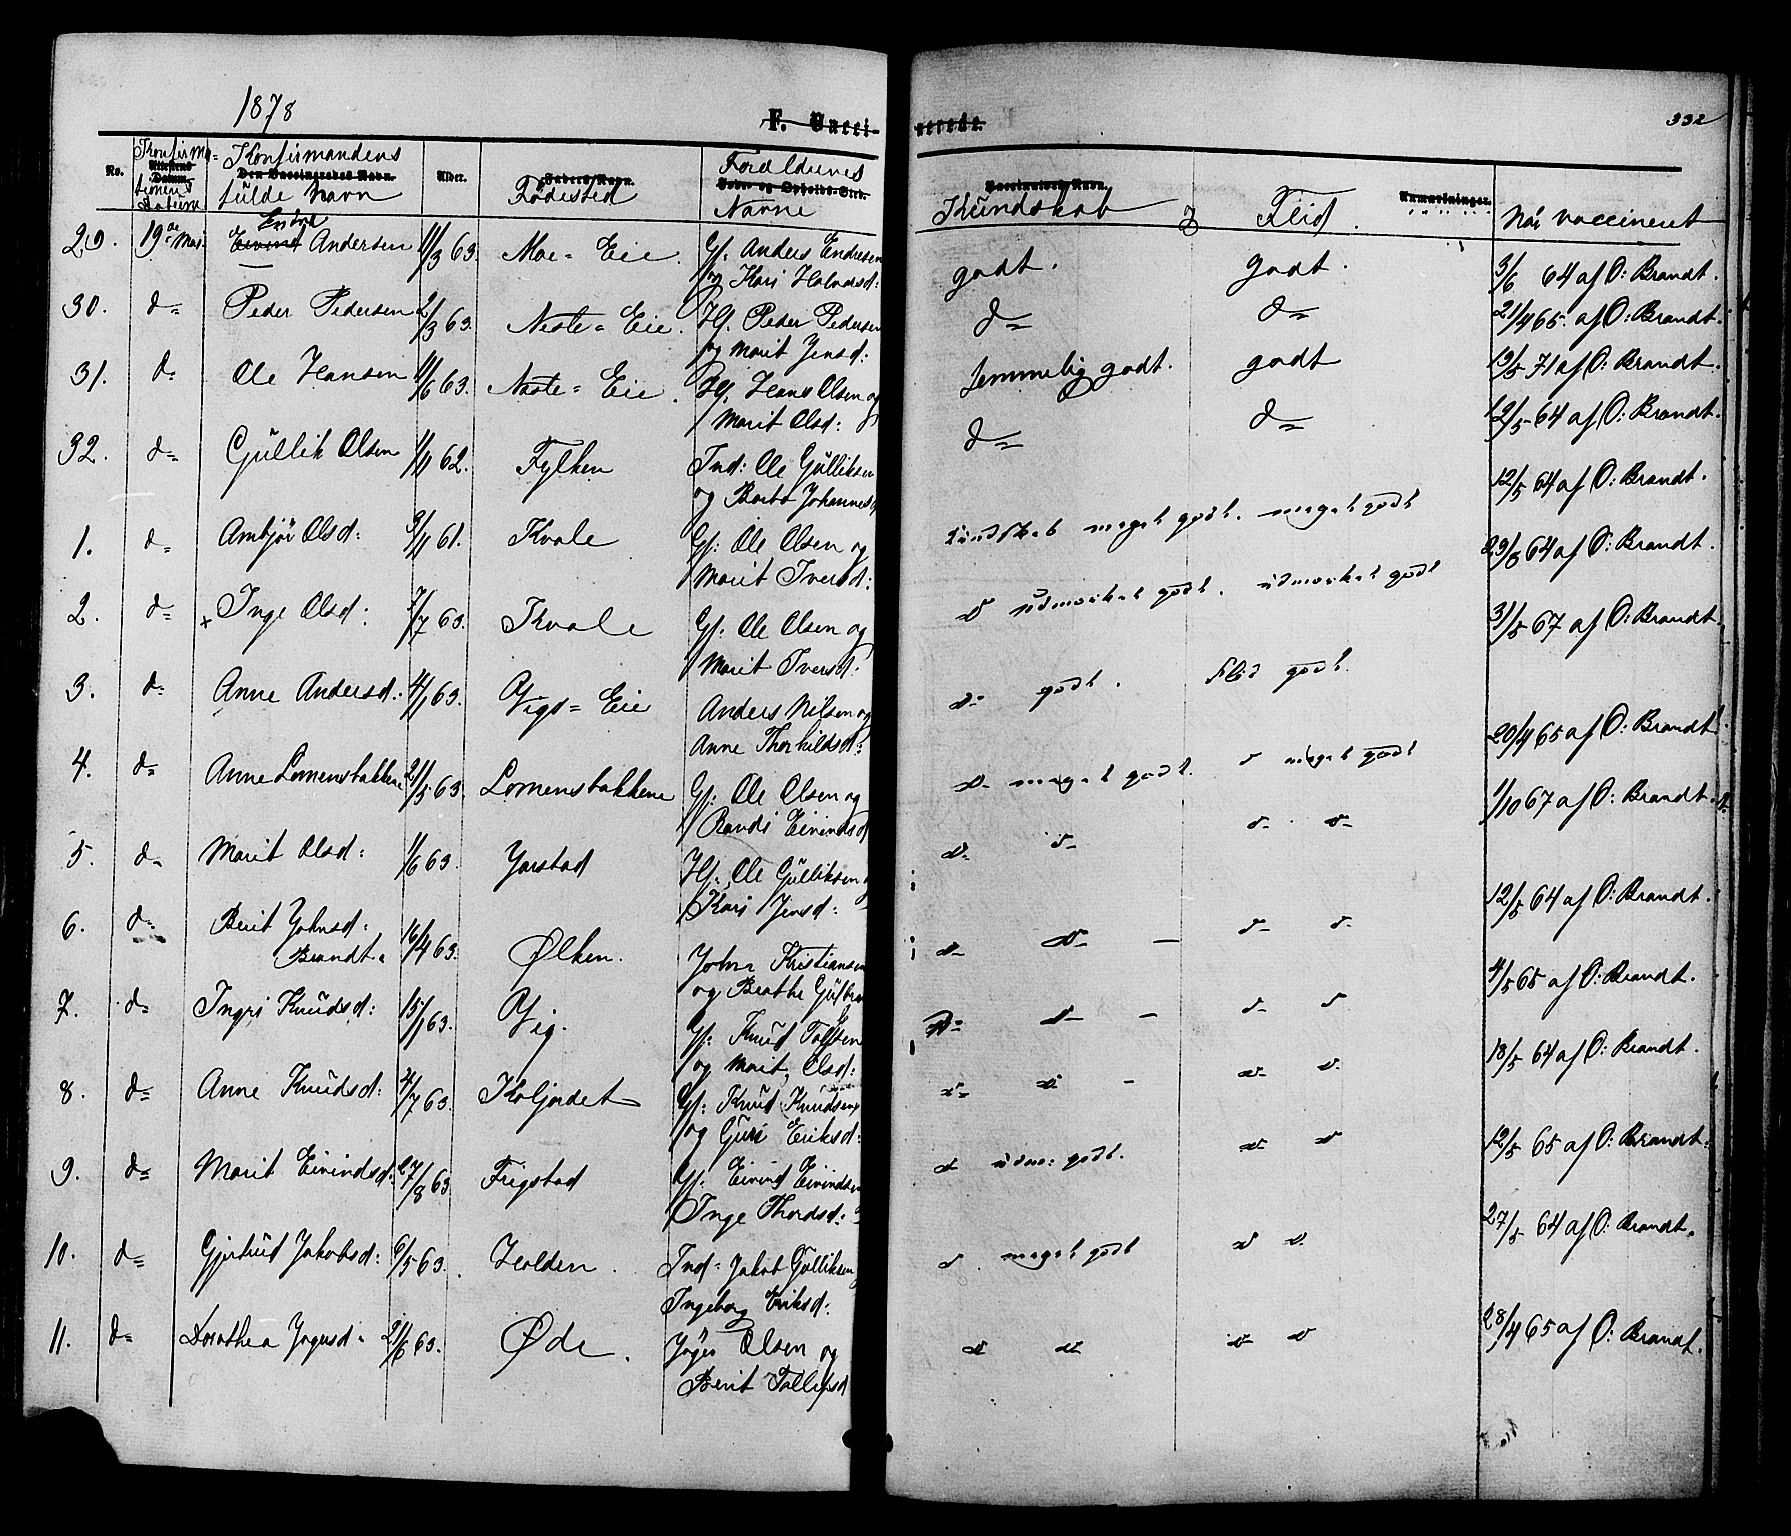 1878
F. Vacci-
nerede.
332
No.
Konfirma-
Attestens
Datum.
tionens
Datum
Konfirmandens
Den Vaccineredes Navn.
fulde Navn
Alder.
Faders Navn.
Fødested
Forældrenes
Føde- og Opholds-Sted.
Navne
Vaccinatørs Navn.
Kundskab
Flid
Anmærkninger.
Når vaccineret
29. 19de Mai Eivind Endre Andersen 11/3 63. Moe-Eie. Gf. Anders Endresen
og Kari Halvorsd: godt. godt. 3/6 64 af O: Brandt.
30. d= Peder Pedersen 2/3 63. Neste-Eie. Hf. Peder Pedersen
og Marit Jensd: d= d= 21/4 65. af O: Brandt.
31. d- Ole Hansen 11/6 63. Neste-Eie. Hf. Hans Olsen og
Marit Olsd: temmelig godt. godt 13/5 71 af O: Brandt.
32. d= Gullik Olsen 1/11 62. Fylken Ind: Ole Gulliksen
og Johannesd d= d= 12/5 64 af O: Brandt.
12/5 64 af O: Brandt.
1. d- Ambjør Olsd: 3/11 61. Kvale Gf: Ole Olsen og
Marit Iversd: Kundskab meget godt. meget godt 23/5 64 af O: Brandt.
2. d= x Inge Olsd: 7/7 63. Kvale Gf: Ole Olsen og
Marit Iversd: d udmærket godt. udmærket godt 31/5 67 af O: Brandt.
3. d- Anne Andersd: 4/1 63. Vigs-Eie Anders Nilsen og
Anne Thorkildsd: d- godt. Flid godt. 20/4 65 af O: Brandt
4. d- Anne Lomensbakken 21/5 63. Lomensbakkene Gf: Ole Olsen og
Randi Eivindsd d- meget godt. d meget godt 1/10 67 af O: Brandt.
5. d- Marit Olsd: 1/6 63. Jarstad Hf: Ole Gulliksen og
Kari Jensd: d- d- d- d- 12/5 64 af O: Brandt.
6. d- Berit Johnsd:
Brandt. 16/4 63. Ølken. John Kristiansen
og Beathe d- d- — d- d- 4/5 65 af O: Brandt.
7. d- Ingri Knudsd: 15/1 63. Vig. Gf: Knud
og Marit Olsd: d- d- — d- d 18/5 64 af O: Brandt.
8. d= Anne Knudsd: 4/7 63. Koljordet Gf: Knud Knudsen
og Guri Eriksd: d- d- - d- d- 12/5 65 af O: Brandt.
9. d= Marit Eivindsd. 27/8 63 Frigstad Gf. Eivind Eivindsen
Inge Thordsd: d udm: godt. d- d 27/5 64 af O: Brandt.
10. d= Gjertrud Jakobsd: 6/5 63. Holden. Ind- Jakob Gulliksen
Ingeborg Eriksd: d meget godt d d.
11. d= Dorothea Jøgersd. 21/6 63. Øde. Jøger Olsen og
Berit Tollefsd d d- d- d 28/4 65 af O: Brandt.